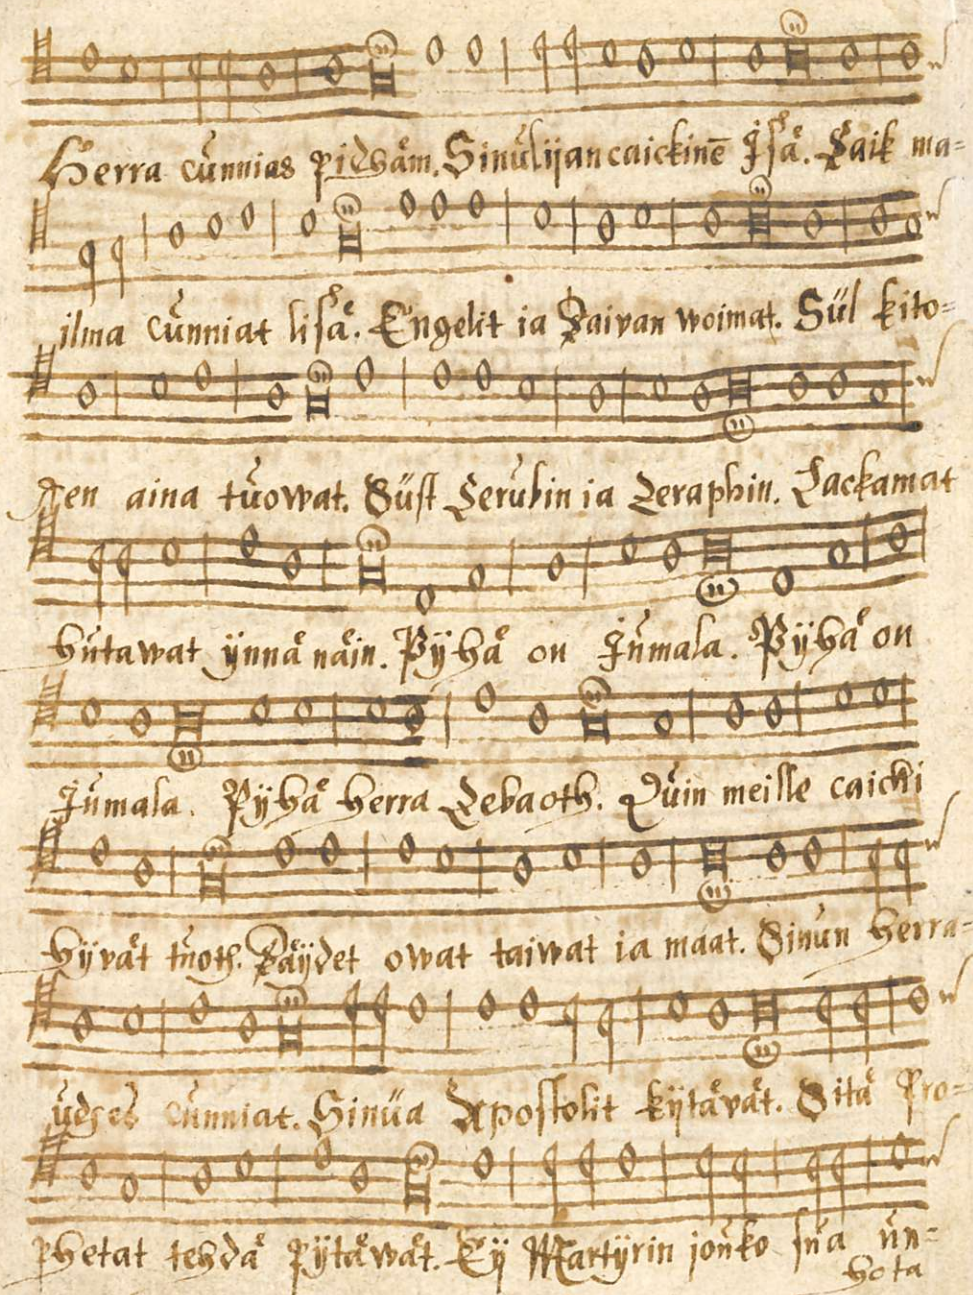 Herra cúnnias pidhäm. Sinúlijan caickinē Jsä. Kaik ma-
ilma cúnniat lisä. Engelit ia Taivan woimat. Sül kito-
xen aina túowat. Süst Kerúbin ia Zeraphin. Lackamat
hútawat ÿnnä näin. Pÿhä on Júmala. Pÿhä on
Júmala. Pÿhä Herra Zebaoth. Qúin meille caicki
hÿvät túoth. Täÿdet owat taiwat ia maat. Sinún Herra-
údhes cúnniat. Sinüa Apostolit kÿtävät. Sitä Pro-
phetat tehdä Pÿtäwät. Eÿ Martÿrin joúko súa ún-
hota